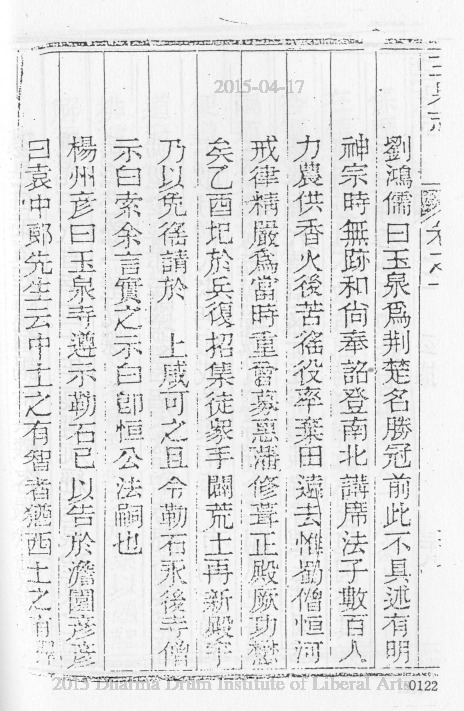 2015-04-17
劉鴻儒曰玉泉爲荆楚名勝冠前此不具述有明
神宗時無跡和尙奉詔登南北講席法子數百人
力農供香火後苦徭役率棄田遠去惟勤僧恒河
戒律精嚴爲當時重嘗募惠潘修葺正殿厥功懋
矣乙酉圯於兵復招集徒衆手闢荒土再新殿宇
乃以免徭請於 上咸可之且令勒石永後寺僧
示白索余言實之示白卽恒公法嗣也
楊州彦曰玉泉寺遵示勒石已以告於澹園彦彦
曰袁中郎先生云中土之有智者猶西土之有
2015 Dharma Drum Institute of Liberal Arts
0122